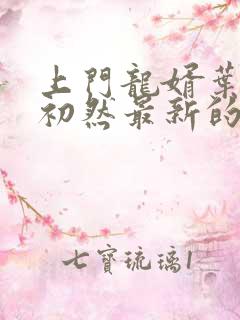 上門龍婿葉
初然最新的
七寶琉璃1